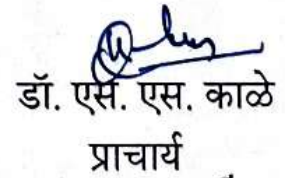 डॉ. एस. एस. काळे
प्राचार्य